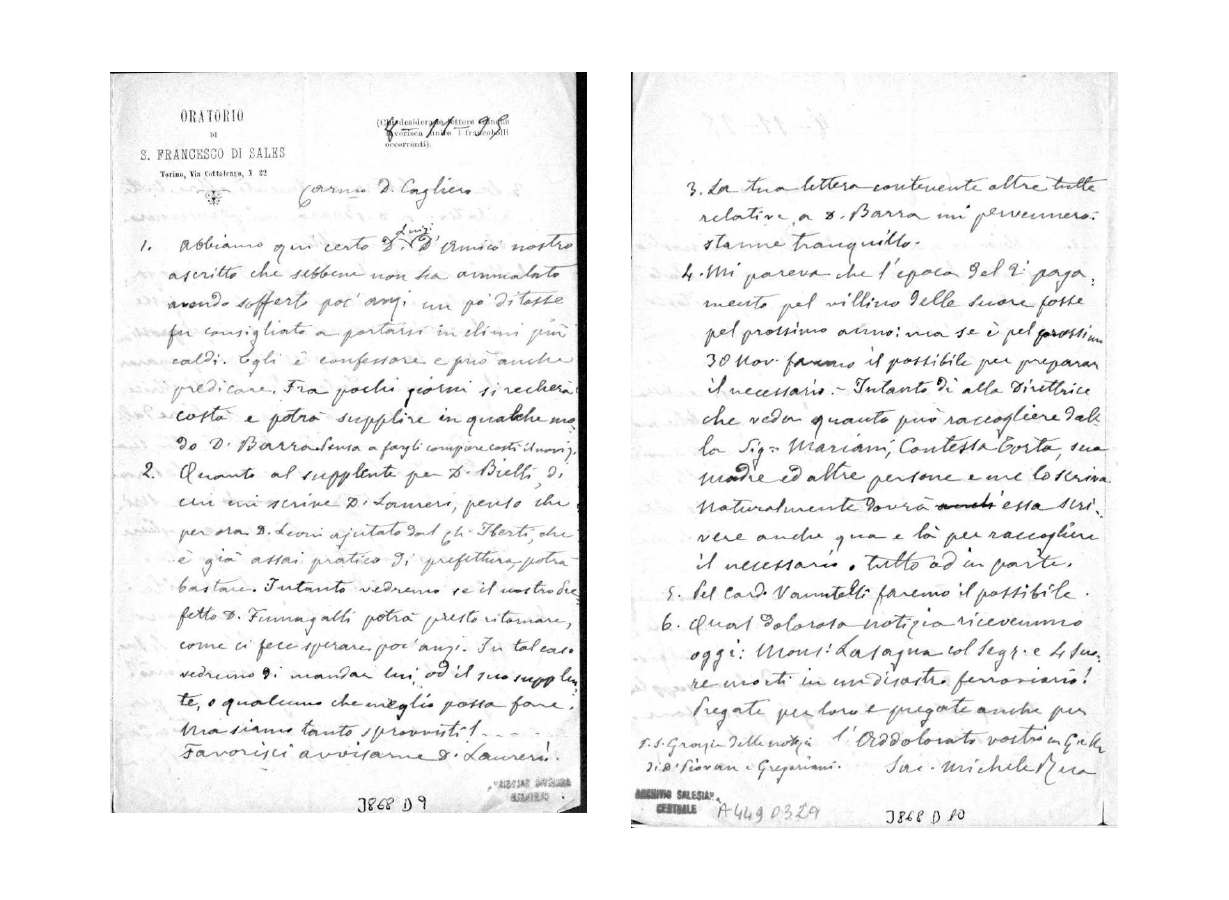 ORATORIO
DI
S. FRANCESCO DI SALES
Torino, Via Cottolengo, N. 32
(Chi desiderasse lettere franche
favorisca unire i francobolli
occorrenti).
8-11-95
Carmo D. Cagliero
1. Abbiamo qui certo D. Luigi D'Amico nostro
ascritto che sebbene non sia ammalato
avendo sofferto poc'anzi un po' di tosse
fu consigliato a portarsi in climi più
caldi. Egli è confessore e può anche
predicare. Fra pochi giorni si recherà
costà e potrà supplire in qualche mo-
do D. Barra senza a fargli compire costì il noviz.
2. Quanto al supplente per D. Bielli, di
cui mi scrive D. Laureri, penso che
per ora D. Leoni ajutato dal Ch. Iberti, che
è già assai pratico di prefettura, potrà
bastare. Intanto vedremo se il nostro Pre-
fetto D. Fumagalli potrà presto ritornare,
come ci fece sperare poc'anzi. In tal caso
vedremo di mandar lui, od il suo supplen-
te, o qualcuno che meglio possa fare.
Ma siamo tanto sprovvisti!
Favorisci avvisarne D. Laureri.
J868 D 9
3. La tua lettera contenente altre tutte
relative a D. Barra mi pervennero:
stanne tranquillo.
4. Mi pareva che l'epoca del 2° paga-
mento pel villino delle suore fosse
pel prossimo anno: ma se è pel prossimo
30 Nov. faremo il possibile per preparar
il necessario. - Intanto dì alla Direttrice
che veda quanto può raccogliere dal-
la Sig.ra Mariani, Contessa Corta, sua
madre ed altre persone e me lo scriva
Naturalmente dovrà anch' essa scri-
vere anche qua e là per raccogliere
il necessario, tutto od in parte.
5. Pel Card. Vannutelli faremo il possibile.
6. Qual dolorosa notizia ricevemmo
oggi: Mons. Lasagna col Segr. e 4 Suo-
re morti in un disastro ferroviario!
Pregate per loro e pregate anche per
l'Addolorato vostro in G. e M.
Sac. Michele Rua
P.S. Grazie delle notizie
di D. Piovan e Gregoriani.
ARCHIVIO SALESIANO
CENTRALE
A4490329
J868 D 10